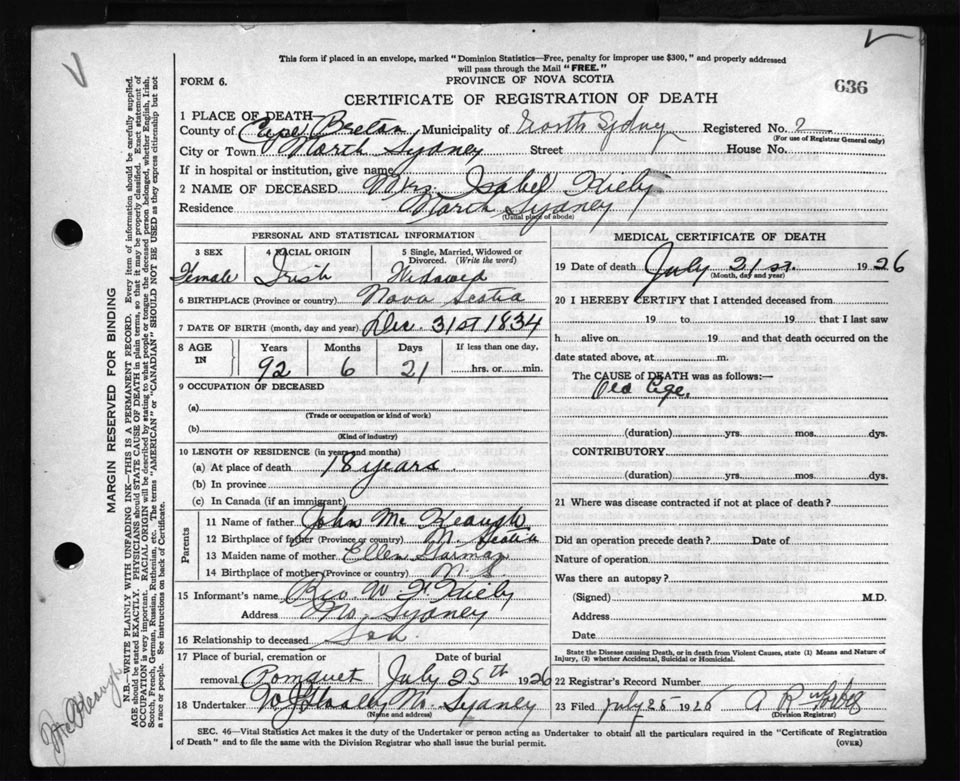 This form if placed in an envelope, marked "Dominion Statistics—Free, penalty for improper use $300," and properly addressed
will pass through the Mail "FREE."
FORM 6.
PROVINCE OF NOVA SCOTIA
636
CERTIFICATE OF REGISTRATION OF DEATH
1 PLACE OF DEATH
County of Cape Breton Municipality of North Sydney Registered No. 2
(For use of Registrar General only)
City or Town North Sydney Street House No.
If in hospital or institution, give name
2 NAME OF DECEASED Mrs. Isabel Kiely
Residence North Sydney
(Usual place of abode)
PERSONAL AND STATISTICAL INFORMATION
3 SEX 4 RACIAL ORIGIN 5 Single, Married, Widowed or Divorced. (Write the word)
Female Irish Widowed
6 BIRTHPLACE (Province or country) Nova Scotia
7 DATE OF BIRTH (month, day and year) Dec. 31st 1834
8 AGE IN Years Months Days If less than one day,
92 6 21 hrs. or min.
9 OCCUPATION OF DECEASED
(a)
(Trade or occupation or kind of work)
(b)
(Kind of industry)
10 LENGTH OF RESIDENCE (in years and months)
(a) At place of death 18 years.
(b) In province
(c) In Canada (if an immigrant)
Parents
11 Name of father John Mc Keough
12 Birthplace of father (Province or country) N. Scotia
13 Maiden name of mother Ellen
14 Birthplace of mother (Province or country) N. S
15 Informant's name Rev. W F. Kiely
Address No. Sydney
16 Relationship to deceased Son
17 Place of burial, cremation or removal Date of burial
Pomquet July 25th 1926
18 Undertaker No. Sydney
(Name and address)
MEDICAL CERTIFICATE OF DEATH
19 Date of death July 21st. 1926
(Month, day and year)
20 I HEREBY CERTIFY that I attended deceased from
19 to 19 that I last saw
h alive on 19 and that death occurred on the
date stated above, at m.
The CAUSE of DEATH was as follows:—
Old Age.
(duration) yrs. mos. dys.
CONTRIBUTORY
(duration) yrs. mos. dys.
21 Where was disease contracted if not at place of death?
Did an operation precede death? Date of
Nature of operation
Was there an autopsy?
(Signed) M.D.
Address
Date
State the Disease causing Death, or in death from Violent Causes, state (1) Means and Nature of
Injury, (2) whether Accidental, Suicidal or Homicidal.
22 Registrar's Record Number
23 Filed July 25 1926 A R
(Division Registrar)
SEC. 46—Vital Statistics Act makes it the duty of the Undertaker or person acting as Undertaker to obtain all the particulars required in the "Certificate of Registration
of Death" and to file the same with the Division Registrar who shall issue the burial permit.
(OVER)
MARGIN RESERVED FOR BINDING
N.B.—WRITE PLAINLY WITH UNFADING INK—THIS IS A PERMANENT RECORD. Every item of information should be carefully supplied.
AGE should be stated EXACTLY. PHYSICIANS should STATE CAUSE OF DEATH in plain terms, so that it may be properly classified. Exact statement of
OCCUPATION is very important. RACIAL ORIGIN will be described by stating to what people or tongue the deceased person belonged, whether English, Irish,
Scotch, French, German, Russian, Ruthenian, etc. The terms "AMERICAN" or "CANADIAN" SHOULD NOT BE USED as they express citizenship but not
a race or people. See instructions on back of Certificate.
McKeough